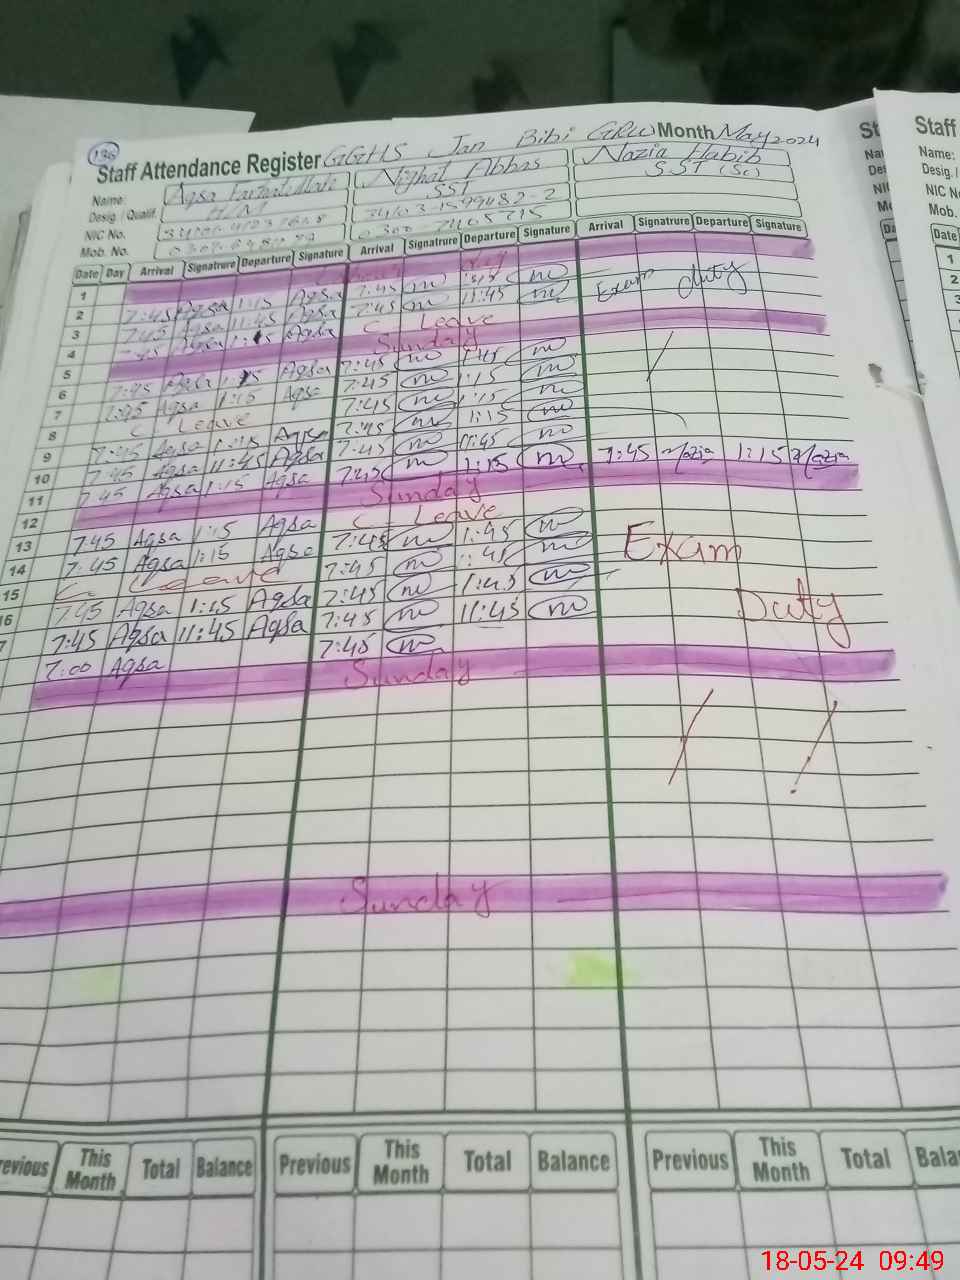 136
Staff Attendance Register GGHS Jan Bibi GRW Month May 2024
Name: Aqsa Nighat Abbas Nazia Habib
Desig. / Qualif. H/M SST SST (Sc)
NIC No. 34103-1599482-2
Mob. No. 0300-7405715
Date Day Arrival Signatrure Departure Signature Arrival Signatrure Departure Signature Arrival Signatrure Departure Signature
1
2 7:45 Aqsa 1:15 Aqsa 7:45 1:45 Exam duty
3 7:45 Aqsa 11:45 Aqsa 7:45 11:45
4 7:45 Aqsa Aqsa C. Leave
5 Sunday
6 7:45 Aqsa 1:15 Aqsa 7:45 1:45
7 7:45 Aqsa 1:15 Aqsa 7:45 1:15
8 C. Leave 7:45 1:15
9 7:45 Aqsa 1:15 Aqsa 7:45 1:15
10 7:45 Aqsa 11:45 Aqsa 7:45 11:45
11 7:45 Aqsa 1:15 Aqsa 7:45 1:15 7:45 Nazia 1:15 Nazia
12 Sunday
13 7:45 Aqsa 1:15 Aqsa C. Leave
14 7:45 Aqsa 1:15 Aqsa 7:45 1:45 Exam
15 C. Leave 7:45 1:45
16 7:45 Aqsa 1:15 Aqsa 7:45 1:45 Duty
7 7:45 Aqsa 11:45 Aqsa 7:45 11:45
7:00 Aqsa 7:45
Sunday
Sunday
revious This Month Total Balance Previous This Month Total Balance Previous This Month Total Bala
Staff
Name:
Desig./
NIC No
Mob.
Date
1
2
18-05-24 09:49